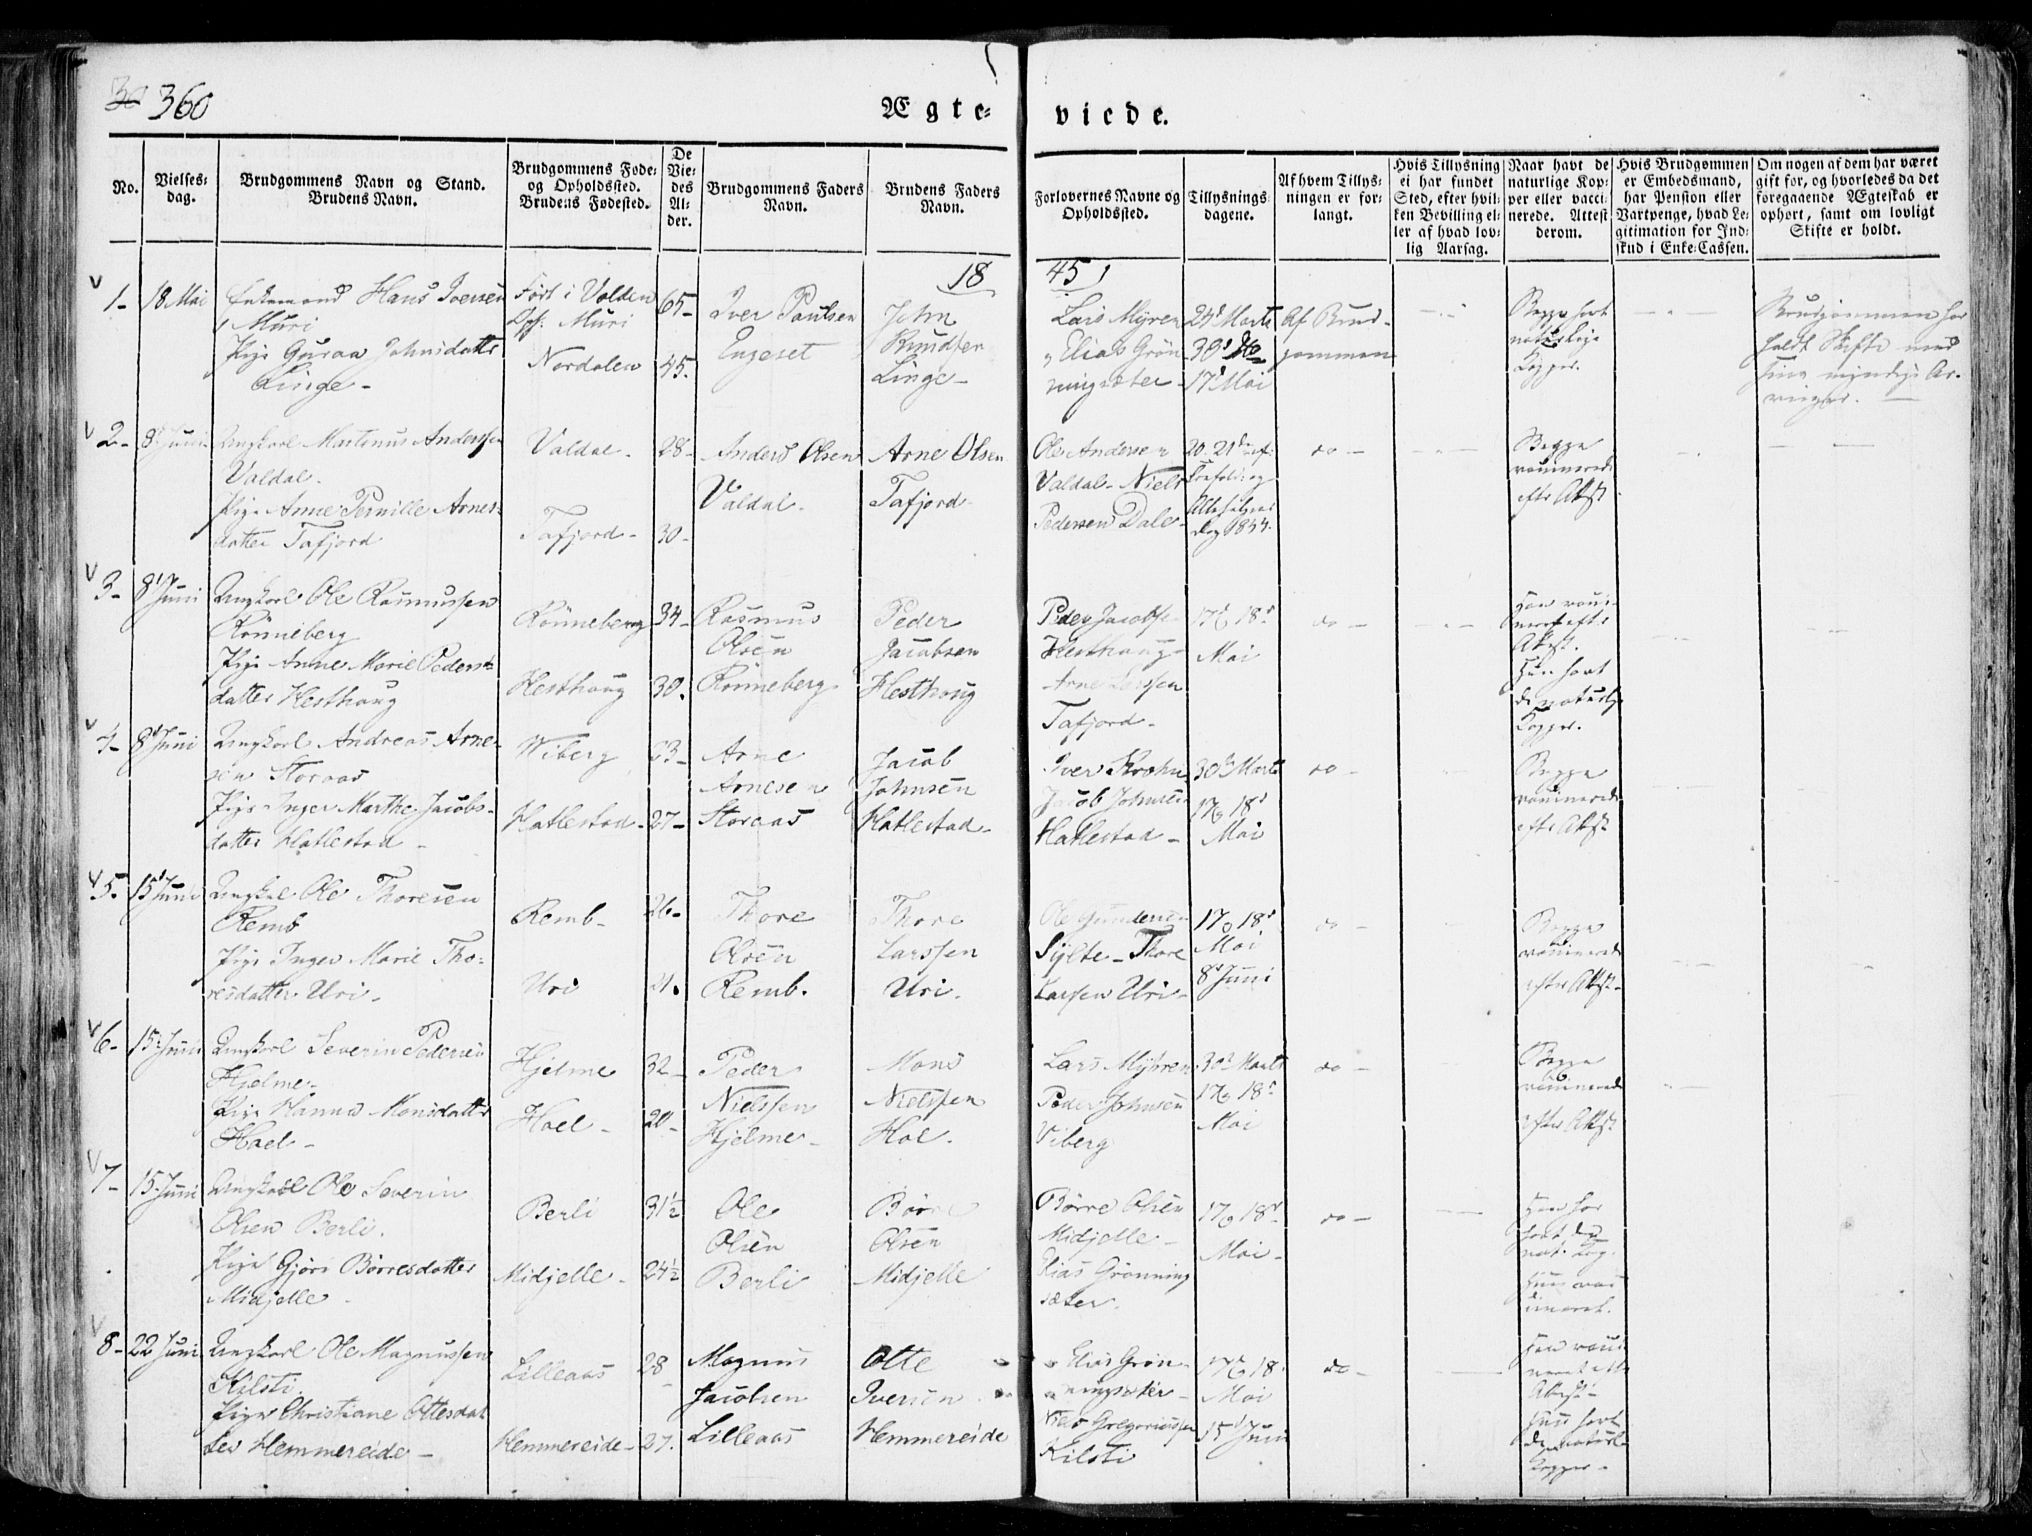 30 360
Ægte-
viede.
No.
Vielses-
dag.
Brudgommens Navn og Stand.
Brudens Navn.
Brudgommens Føde-
og Opholdssted.
Brudens Fødested.
De
Vie-
des
Al-
der.
Brudgommens Faders
Navn.
Brudens Faders
Navn.
Forlovernes Navne og
Opholdssted.
Tillysnings-
dagene.
Af hvem Tillys-
ningen er for-
langt.
Hvis Tillysning
ei har fundet
Sted, efter hvil-
ken Bevilling el-
ler af hvad lov-
lig Aarsag.
Naar havt de
naturlige Kop-
per eller vacci-
nerede. Attest
derom.
Hvis Brudgommen
er Embedsmand,
har Pension eller
Vartpenge, hvad Le-
gitimation for Ind-
skud i Enke-Cassen.
Om nogen af dem har været
gift før, og hvorledes da det
foregaaende Ægteskab er
ophørt, samt om lovligt
Skifte er holdt.
18
45
1-
18 Mai
Enkemand Hans Iversen
Muri
Pige Guraa Johnsdatter
Linge -
Født i Volden
Opf: Muri
Nordalen
65-
45.
Iver Paulsen
Engeset
John
Knudsen
Linge -
Lars Myren
Elias Grön
ningsæter
24 Marts
30 do
17 Mai
Af Brud-
gommen
Begge havt
naturlige
Kopper.
Brudgommen har
holdt Skifte med
sine myndige Ar-
vinger. -
2-
8 Juni
Ungkarl Martinus Andersen
Valdal.
Pige Anne Pernille Arnes-
datter Tafjord
Valdal -
Tafjord -
28-
30-
Anders Olsen
Valdal.
Arne Olsen
Tafjord
Ole Andersen
Valdal - Niels
Pedersen Dale -
20. 21de
Trefold: og
Allehelgens
Dag 1844.
do -
Begge
vaccinerede
efter Attest
3-
8 Juni
Ungkarl Ole Rasmussen
Rönneberg
Pige Anne Marie Peders-
datter Hesthoug
Rönneberg
Hesthoug
34-
30.
Rasmus
Olsen
Rönneberg
Peder
Jacobsen
Hesthoug
Peder Jacobsen
Hesthoug -
Arne Larssen
Tafjord -
17 & 18
Mai
do -
Han vacci-
neret efter
Attest.
Hun havt
de naturlige
Kopper.
4-
8 Juni
Ungkarl Andreas Arne-
sen Storaas
Pige Inger Marthe Jacobs-
datter Hatlestad -
Wiberg
Hatlestad -
23-
27-
Arne
Arnesen
Storaas
Jacob
Johnsen
Hatlestad -
Iver Krohn
Jacob Johnsen
Hatlestad -
30 Marts
17 & 18
Mai
do -
Begge
vaccinerede
efter Attest
5.
15 Juni
Ungkarl Ole Thoresen
Remb
Pige Inger Marie Tho-
resdatter Uri -
Remb -
Uri
26-
21.
Thore
Olsen
Remb.
Thore
Larssen
Uri.
Ole Gundersen
Sylte - Thore
Larsen Uri -
17 & 18
Mai
8 Juni
do -
Begge
vaccinerede
efter Attest -
6-
15 Juni
Ungkarl Severin Pedersen
Hjelme -
Pige Hanna Monsdatter
Hoel -
Hjelme
Hoel -
32-
20-
Peder
Nielssen
Hjelme -
Mons
Nielssen
Hoe.
Lars Myhren
Peder Johnsen
Viberg
30 Marts
17 & 18
Mai
do -
Begge
vaccinerede
efter Attest
7-
15 Juni
Ungkarl Ole Severin
Olsen Berli.
Pige Gjöri Börresdatter
Midjelle -
Berli
Midjelle -
31½
24½
Ole
Olsen
Berli
Börre
Olsen
Midjelle
Börre Olsen
Midjelle -
Elias Grönning
sæter.
17 & 18
Mai -
do -
Han har
havt de
nat: Kop.
Hun vac
cineret.
8-
22 Juni
Ungkarl Ole Magnussen
Kilsti.
Pige Christiane Ottesdat
ter Hemmereide -
Lilleaas
Hemmereide -
28
27.
Magnus
Jacobsen
Lilleaas
Otte
Iversen
Hemmereide
Elias Grön-
ningsæter -
Niels Gregoriussen
Kilsti
17 & 18
Mai
15 Juni
do -
Han vacci
neret efter
Attest -
Hun havt
de naturl
Kopper -